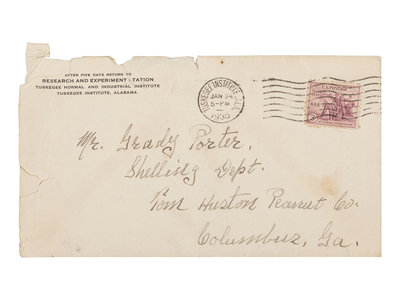 AFTER FIVE DAYS RETURN TO
RESEARCH AND EXPERIMENT STATION
TUSKEGEE NORMAL AND INDUSTRIAL INSTITUTE
TUSKEGEE INSTITUTE, ALABAMA
TUSKEGEE INSTITUTE, ALA.
JAN
5-PM
1935
U.S. POSTAGE
Mr. Grady Porter,
Shelling Dept.
Tom Huston Peanut Co.
Columbus, Ga.